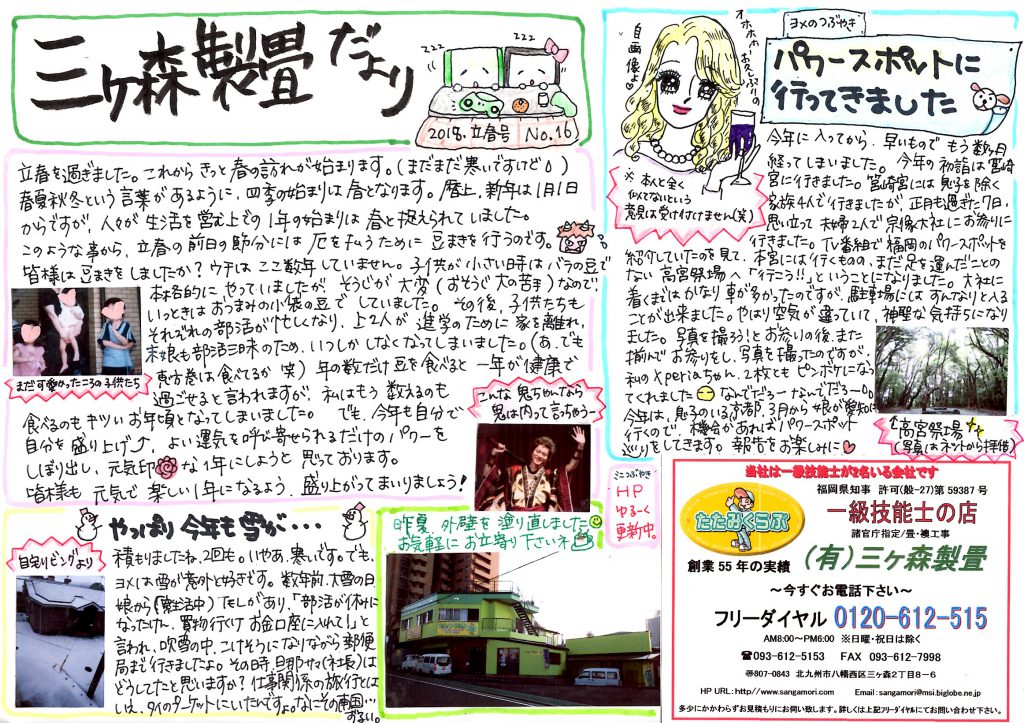 三ヶ森製畳だより
zzz
zzz
2018.立春号 No.16
立春を過ぎました。これから きっと 春の訪れが始まります。(まだまだ寒いですけど)
春夏秋冬という言葉があるように、四季の始まりは春となります。暦上、新年は1月1日
からですが、人々が生活を営む上での1年の始まりは春と捉えられていました。
このような事から、立春の前日の節分には厄を払うために豆まきを行うのです。
皆様は豆まきをしましたか?ウチはここ数年していません。子供が小さい時はバラの豆で
本格的にやっていましたが、そうじが大変(おそうじ大の苦手)なので、
いっときはおつまみの小袋の豆でしていました。その後、子供たちも
それぞれの部活が忙しくなり、上2人が進学のために家を離れ、
末娘も部活三昧のため、いつしかしなくなってしまいました。(あ、でも
恵方巻は食べてるか 笑) 年の数だけ豆を食べると一年が健康で
過ごせると言われますが、私はもう数えるのも
食べるのもキツいお年頃となってしまいました。でも、今年も自分で
自分を盛り上げ、よい運気を呼び寄せられるだけのパワーを
しぼり出し、元気印な1年にしようと思っております。
皆様も元気で楽しい1年になるよう、盛り上がってまいりましょう!
まだ可愛かったころの子供たち
こんな鬼ちゃんなら
鬼は内って言っちゃうー
やっぱり今年も雪が・・・
自宅リビングより
積もりましたね、2回も。いやぁ、寒いです。でも、
ヨメは雪が意外と好きです。数年前、大雪の日
娘から(寮生活中)TELがあり、「部活が休みに
なったけん、買物行くけお金口座に入れて!」と
言われ、吹雪の中、こけそうになりながら郵便
局まで行きましたよ。その時、旦那サマ(社長)は
どうしてたと思いますか?仕事関係の旅行とは
いえ、タイのプーケットにいたんですよ。なにその南国…
ずるい。
昨夏、外壁を塗り直しました
お気軽にお立寄り下さいネ
ミニつぶやき
HP
ゆるーく
更新中。
オホホホ お久しぶりの
自画像よ
※本人と全く
似てないという
意見は受け付けません(笑)
ヨメのつぶやき
パワースポットに
行ってきました
今年に入ってから、早いもので もう数ヶ月
経ってしまいました。今年の初詣は宮崎
宮に行きました。筥崎宮には息子を除く
家族4人で行きましたが、正月も過ぎた7日、
思い立って夫婦2人で宗像大社にお参りに
行きました。TV番組で福岡のパワースポットを
紹介していたのを見て、本宮には行くものの、まだ足を運んだことの
ない高宮祭場へ「行こう!!」ということになりました。大社に
着くまはかなり車が多かったのですが、駐車場にはすんなりと入る
ことが出来ました。やはり空気が違っていて、神聖な気持ちになり
ました。写真を撮ろう!とお参りの後、また
揃んでお参りをし、写真を撮ったのですが、
私のXperiaちゃん、2枚ともピンボケになっ
てくれました なんでだろーなんでだろーo。
今年は、息子のいる京都、3月から娘が愛知に
行くので、機会があればパワースポット
巡りをしてきます。報告をお楽しみに
↑高宮祭場
(写真はネットから拝借)
当社は一級技能士が2名いる会社です
たたみくらぶ
福岡県知事 許可(般-27)第59387号
一級技能士の店
諸官庁指定/畳・襖工事
創業55年の実績 (有)三ヶ森製畳
~今すぐお電話下さい~
フリーダイヤル 0120-612-515
AM8:00~PM6:00 ※日曜・祝日は除く
☎093-612-5153 FAX 093-612-7998
〒807-0843 北九州市八幡西区三ヶ森2丁目8-6
HP URL: http//www.sangamori.com Email: sangamori@msi.biglobe.ne.jp
多少にかかわらずお見積もりにお伺い致します。詳しくは上記フリーダイヤルにてお問い合わせ下さい。